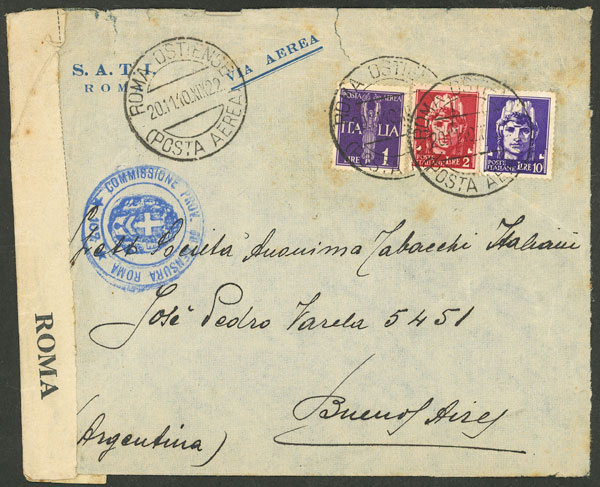 S. A. T. I.
ROMA
VIA AEREA
ROMA OSTIENSE
(POSTA AEREA)
POSTA AEREA
ITALIA
LIRE 1
POSTE ITALIANE
LIRE 2
POSTE ITALIANE
LIRE 10
ROMA OSTIENSE
ROMA OSTIENSE
(POSTA AEREA)
COMMISSIONE PROV. DI CENSURA ROMA
Spett. Società Anonima Tabacchi Italiani
José Pedro Varela 5451
Buenos Aires
(Argentina)
ROMA